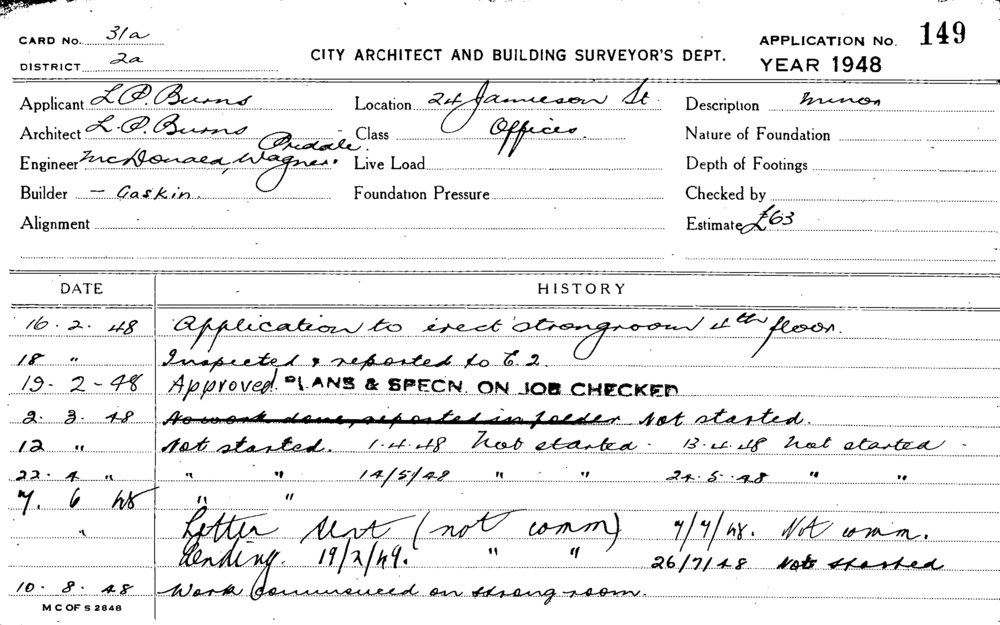 CARD No. 31a
DISTRICT 2a
CITY ARCHITECT AND BUILDING SURVEYOR'S DEPT.
APPLICATION No. 149
YEAR 1948
Applicant L. P. Burns Location 24 Jamieson St. Description minor
Architect L. P. Burns Class Offices. Nature of Foundation
Engineer McDonald, Wagner. Priddle. Live Load Depth of Footings
Builder – Gaskin. Foundation Pressure Checked by
Alignment Estimate £63
DATE HISTORY
16. 2. 48 Application to erect strongroom 4th floor.
18 " Inspected & reported to E.2.
19. 2 - 48 Approved. PLANS & SPECN. ON JOB CHECKED
2. 3. 48 No work done, reported in folder Not started.
12 " Not started. 1.4.48 Not started. 13.4.48 Not started.
22. 4 " " " 14/5/48 " " 24.5.48 " "
7. 6 48 " "
" Letter sent (not comm) 7/7/48. Not comm.
Pending. 19/7/49. " " 26/7/48 Not started
10. 8. 48 Work commenced on strong-room.
M C OF S 2848